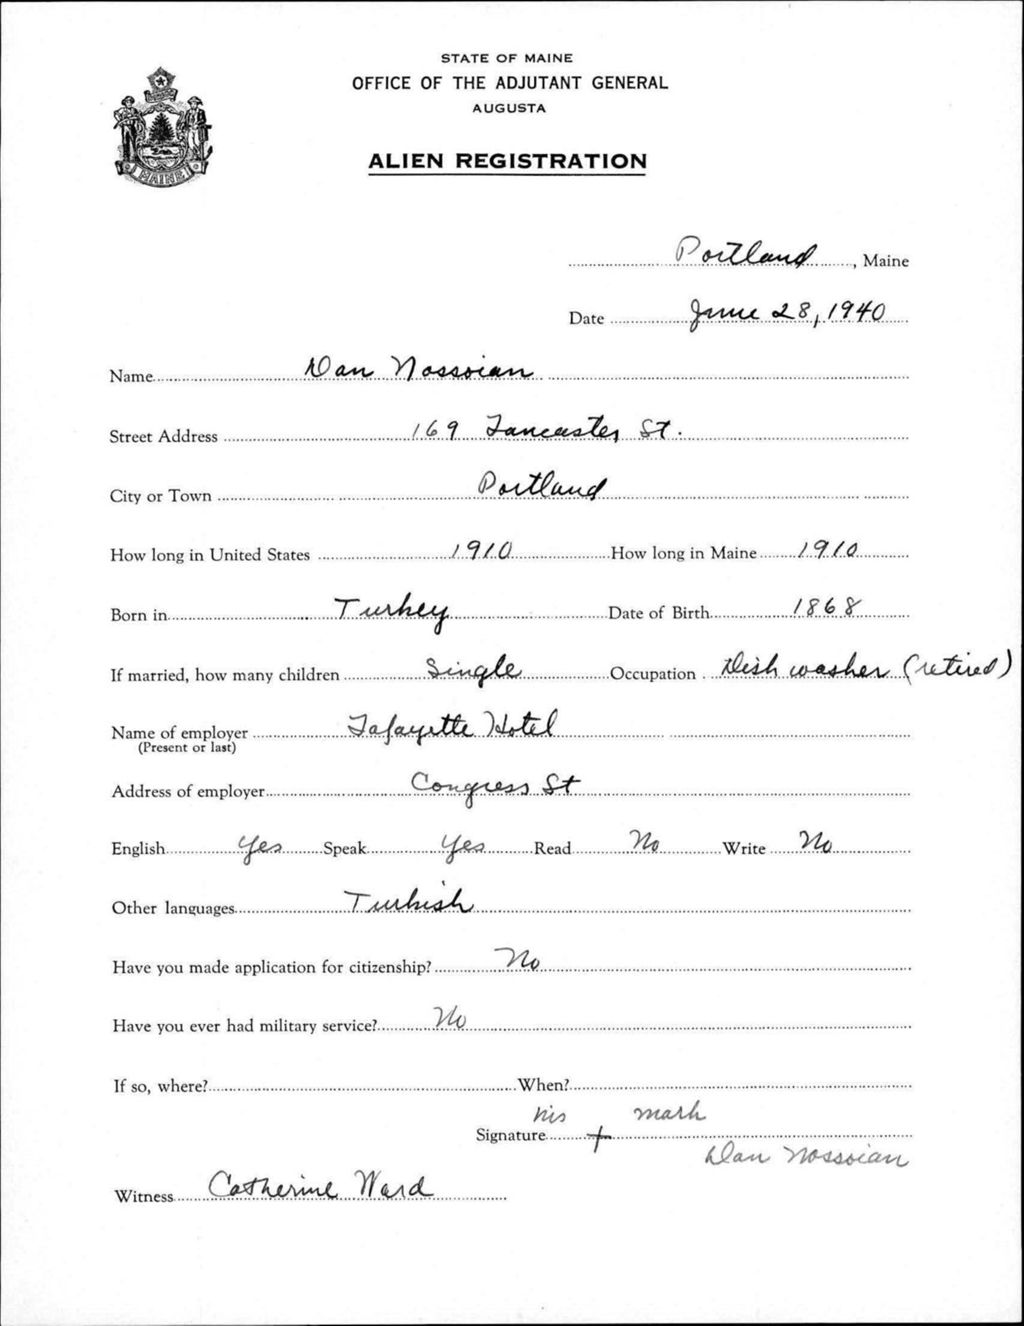 STATE OF MAINE
OFFICE OF THE ADJUTANT GENERAL
AUGUSTA
ALIEN REGISTRATION
MAINE
Portland, Maine
Date June 28, 1940
Name Dan Nossoian
Street Address 169 Lancaster St.
City or Town Portland
How long in United States 1910 How long in Maine 1910
Born in Turkey Date of Birth 1868
If married, how many children Single Occupation Dish washer (retired)
Name of employer Lafayette Hotel
(Present or last)
Address of employer Congress St
English Yes Speak Yes Read No Write No
Other languages Turkish
Have you made application for citizenship? No
Have you ever had military service? No
If so, where? When?
his mark
Signature +
Dan Nossoian
Witness Catherine Ward